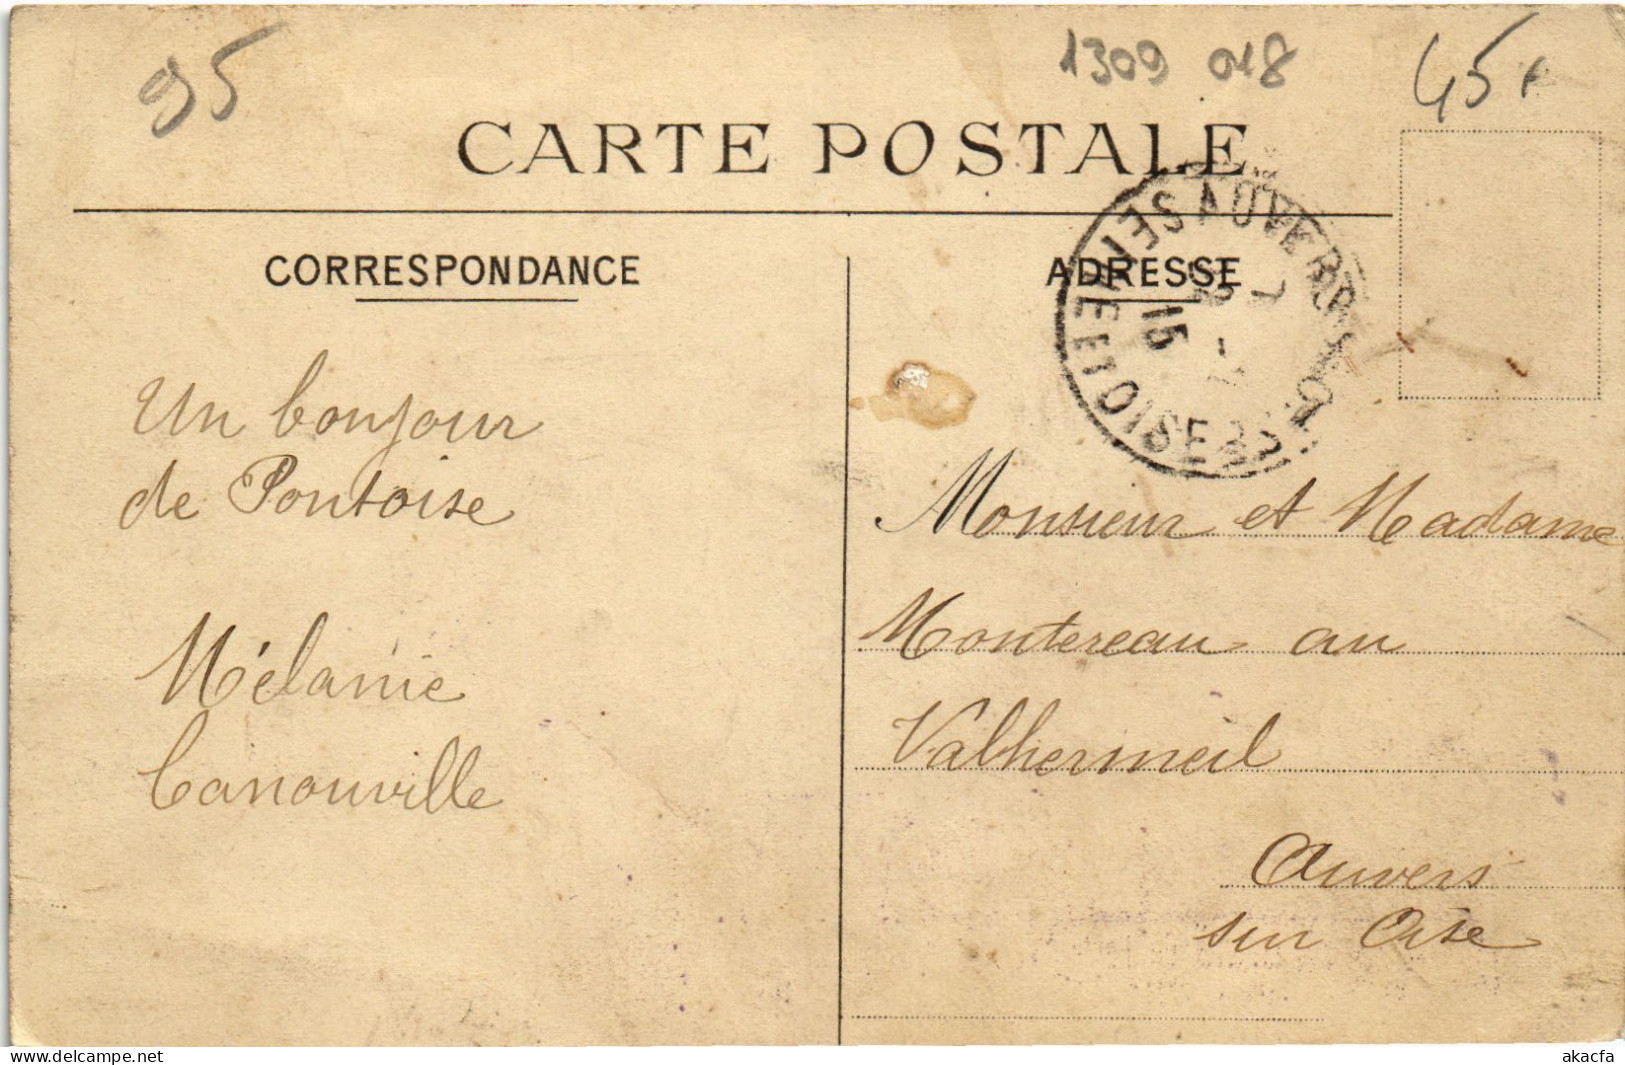 95
1309 018
45
CARTE POSTALE
CORRESPONDANCE
ADRESSE
AUVERS SEINE ET OISE
15
7
Un bonjour
de Pontoise
Mélanie
Canouville
Monsieur et Madame
Montereau au
Valhermeil
Auvers
sur Oise
www.delcampe.net
akacfa